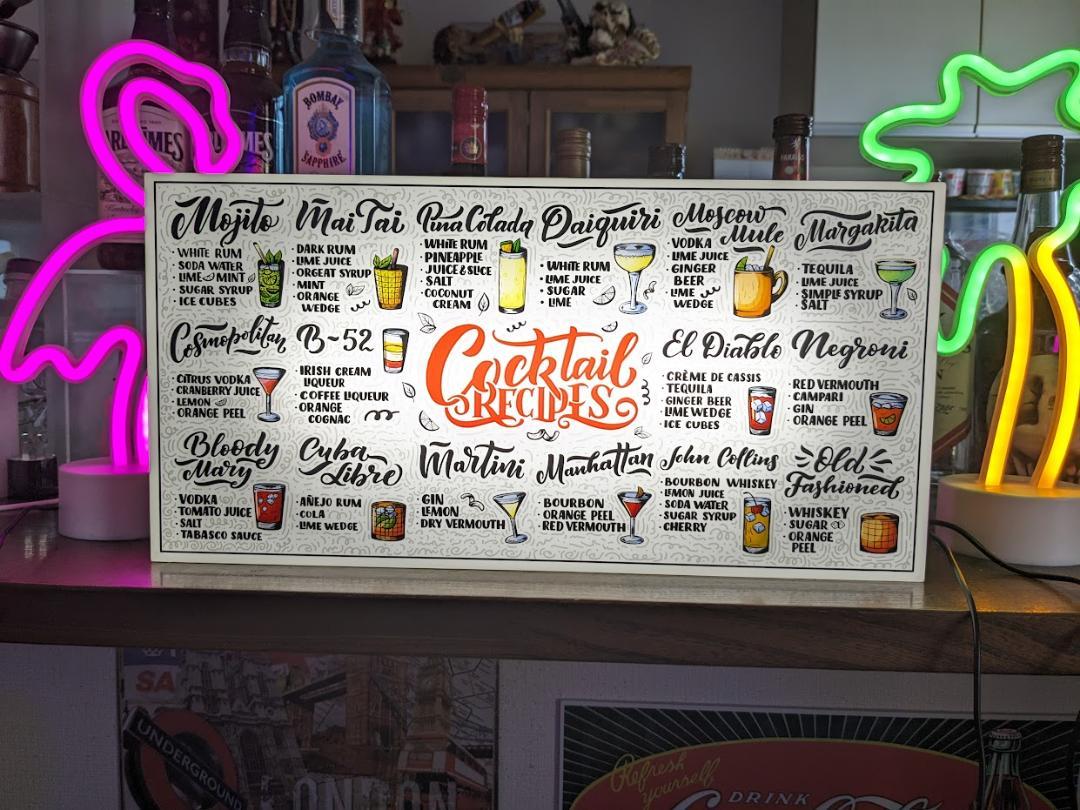 BOMBAY
SAPPHIRE
Mojito
· WHITE RUM
· SODA WATER
· LIME & MINT
· SUGAR SYRUP
· ICE CUBES
Mai Tai
· DARK RUM
· LIME JUICE
· ORGEAT SYRUP
· MINT
· ORANGE
WEDGE
Pina Colada
· WHITE RUM
· PINEAPPLE
JUICE & SLICE
· SALT
· COCONUT
CREAM
Daiquiri
· WHITE RUM
· LIME JUICE
· SUGAR
· LIME
Moscow
Mule
· VODKA
· LIME JUICE
· GINGER
BEER
· LIME
WEDGE
Margarita
· TEQUILA
· LIME JUICE
· SIMPLE SYRUP
· SALT
Cosmopolitan
· CITRUS VODKA
· CRANBERRY JUICE
· LEMON
· ORANGE PEEL
B-52
· IRISH CREAM
LIQUEUR
· COFFEE LIQUEUR
· ORANGE
COGNAC
Cocktail
RECIPES
El Diablo
· CRÈME DE CASSIS
· TEQUILA
· GINGER BEER
· LIME WEDGE
· ICE CUBES
Negroni
· RED VERMOUTH
· CAMPARI
· GIN
· ORANGE PEEL
Bloody
Mary
· VODKA
· TOMATO JUICE
· SALT
· TABASCO SAUCE
Cuba
Libre
· AÑEJO RUM
· COLA
· LIME WEDGE
Martini
· GIN
· LEMON
· DRY VERMOUTH
Manhattan
· BOURBON
· ORANGE PEEL
· RED VERMOUTH
John Collins
· BOURBON WHISKEY
· LEMON JUICE
· SODA WATER
· SUGAR SYRUP
· CHERRY
Old
Fashioned
· WHISKEY
· SUGAR
· ORANGE
PEEL
SA
UNDERGROUND
Refresh
yourself
DRINK